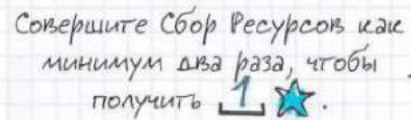 Совершите Сбор Ресурсов как
минимум два раза, чтобы
получить 1 .